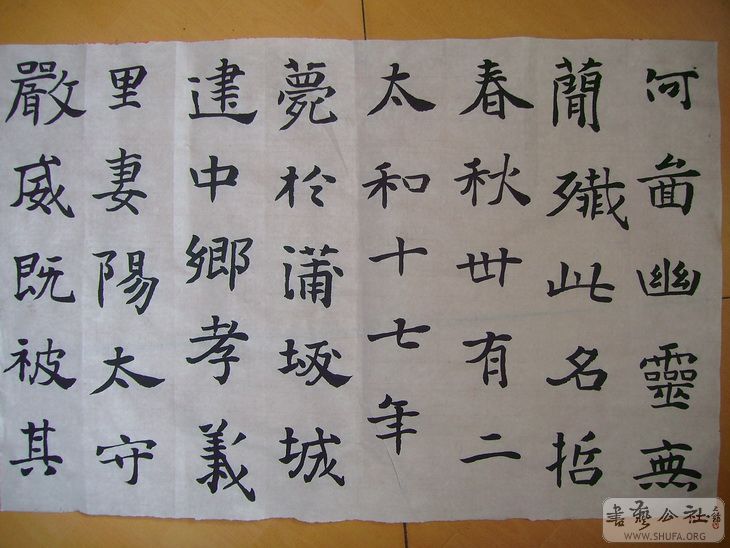 何啚幽靈無
簡殲此名哲
春秋卌有二
太和十七年
薨於蒲坂城
建中鄉孝義
里妻陽太守
嚴威既被其
書藝公社
WWW.SHUFA.ORG